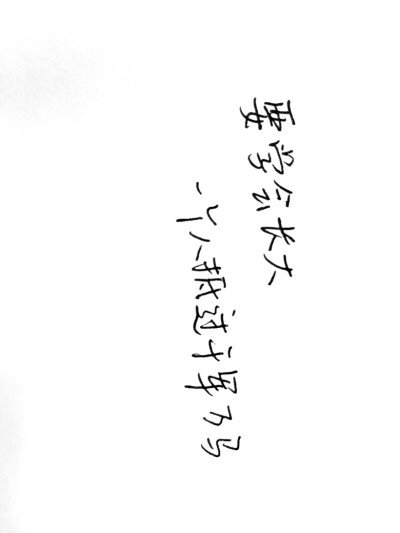 要学会长大
一个人抵过千军万马